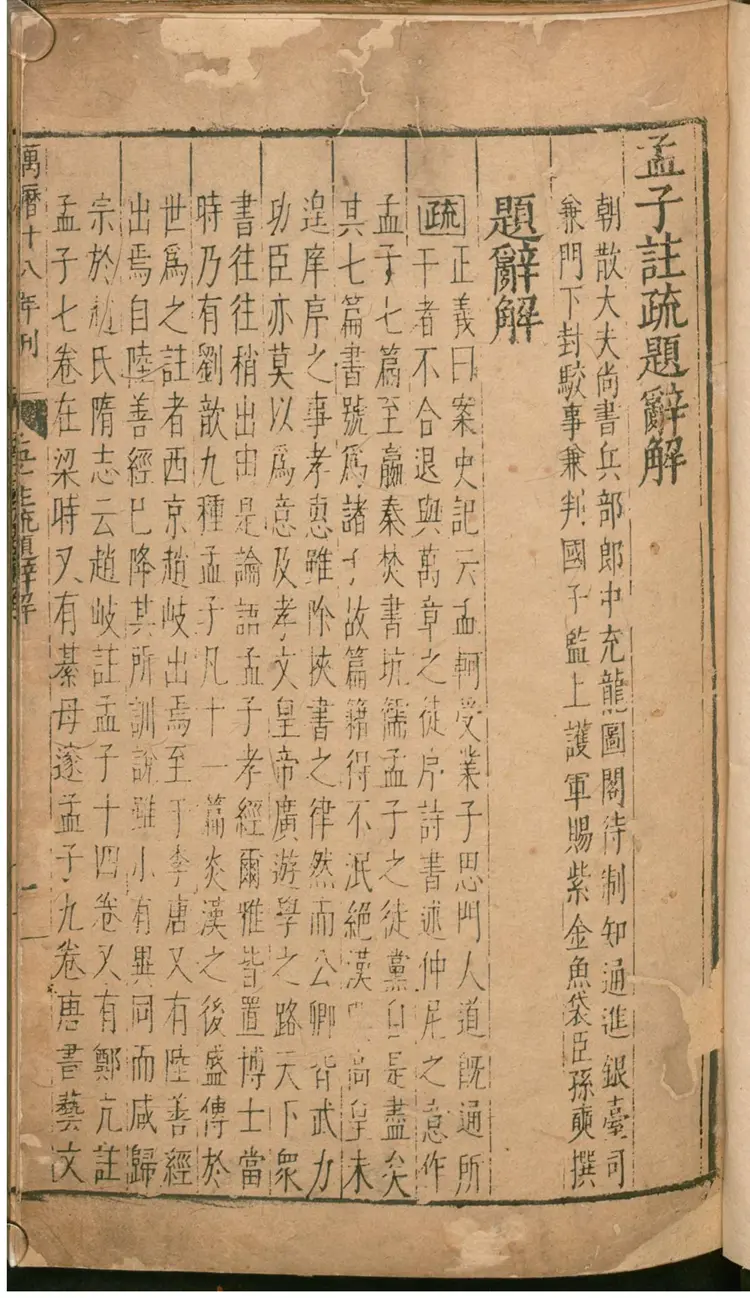 孟子註疏題辭解
朝散大夫尚書兵部郎中充龍圖閣待制知通進銀臺司
兼門下封駮事兼判國子監上護軍賜紫金魚袋臣孫奭撰
題辭解
疏正義曰案史記云孟軻受業子思門人道既通所
干者不合退與萬章之徒序詩書述仲尼之意作
孟子七篇至嬴秦焚書坑儒孟子之徒黨自是盡矣
其七篇書號爲諸子故篇籍得不泯絕漢興高皇未
遑庠序之事孝惠雖除挾書之律然而公卿皆武力
功臣亦莫以爲意及孝文皇帝廣遊學之路天下衆
書往往稍出由是論語孟子孝經爾雅皆置博士當
時乃有劉歆九種孟子凡十一篇炎漢之後盛傳於
世爲之註者西京趙岐出焉至于李唐又有陸善經
出焉自陸善經已降其所訓說雖小有異同而咸歸
宗於趙氏隋志云趙岐註孟子十四卷又有鄭亢註
孟子七卷在梁時又有綦母邃孟子九卷唐書藝文
萬曆十八年刊
孟子註疏題辭解
一